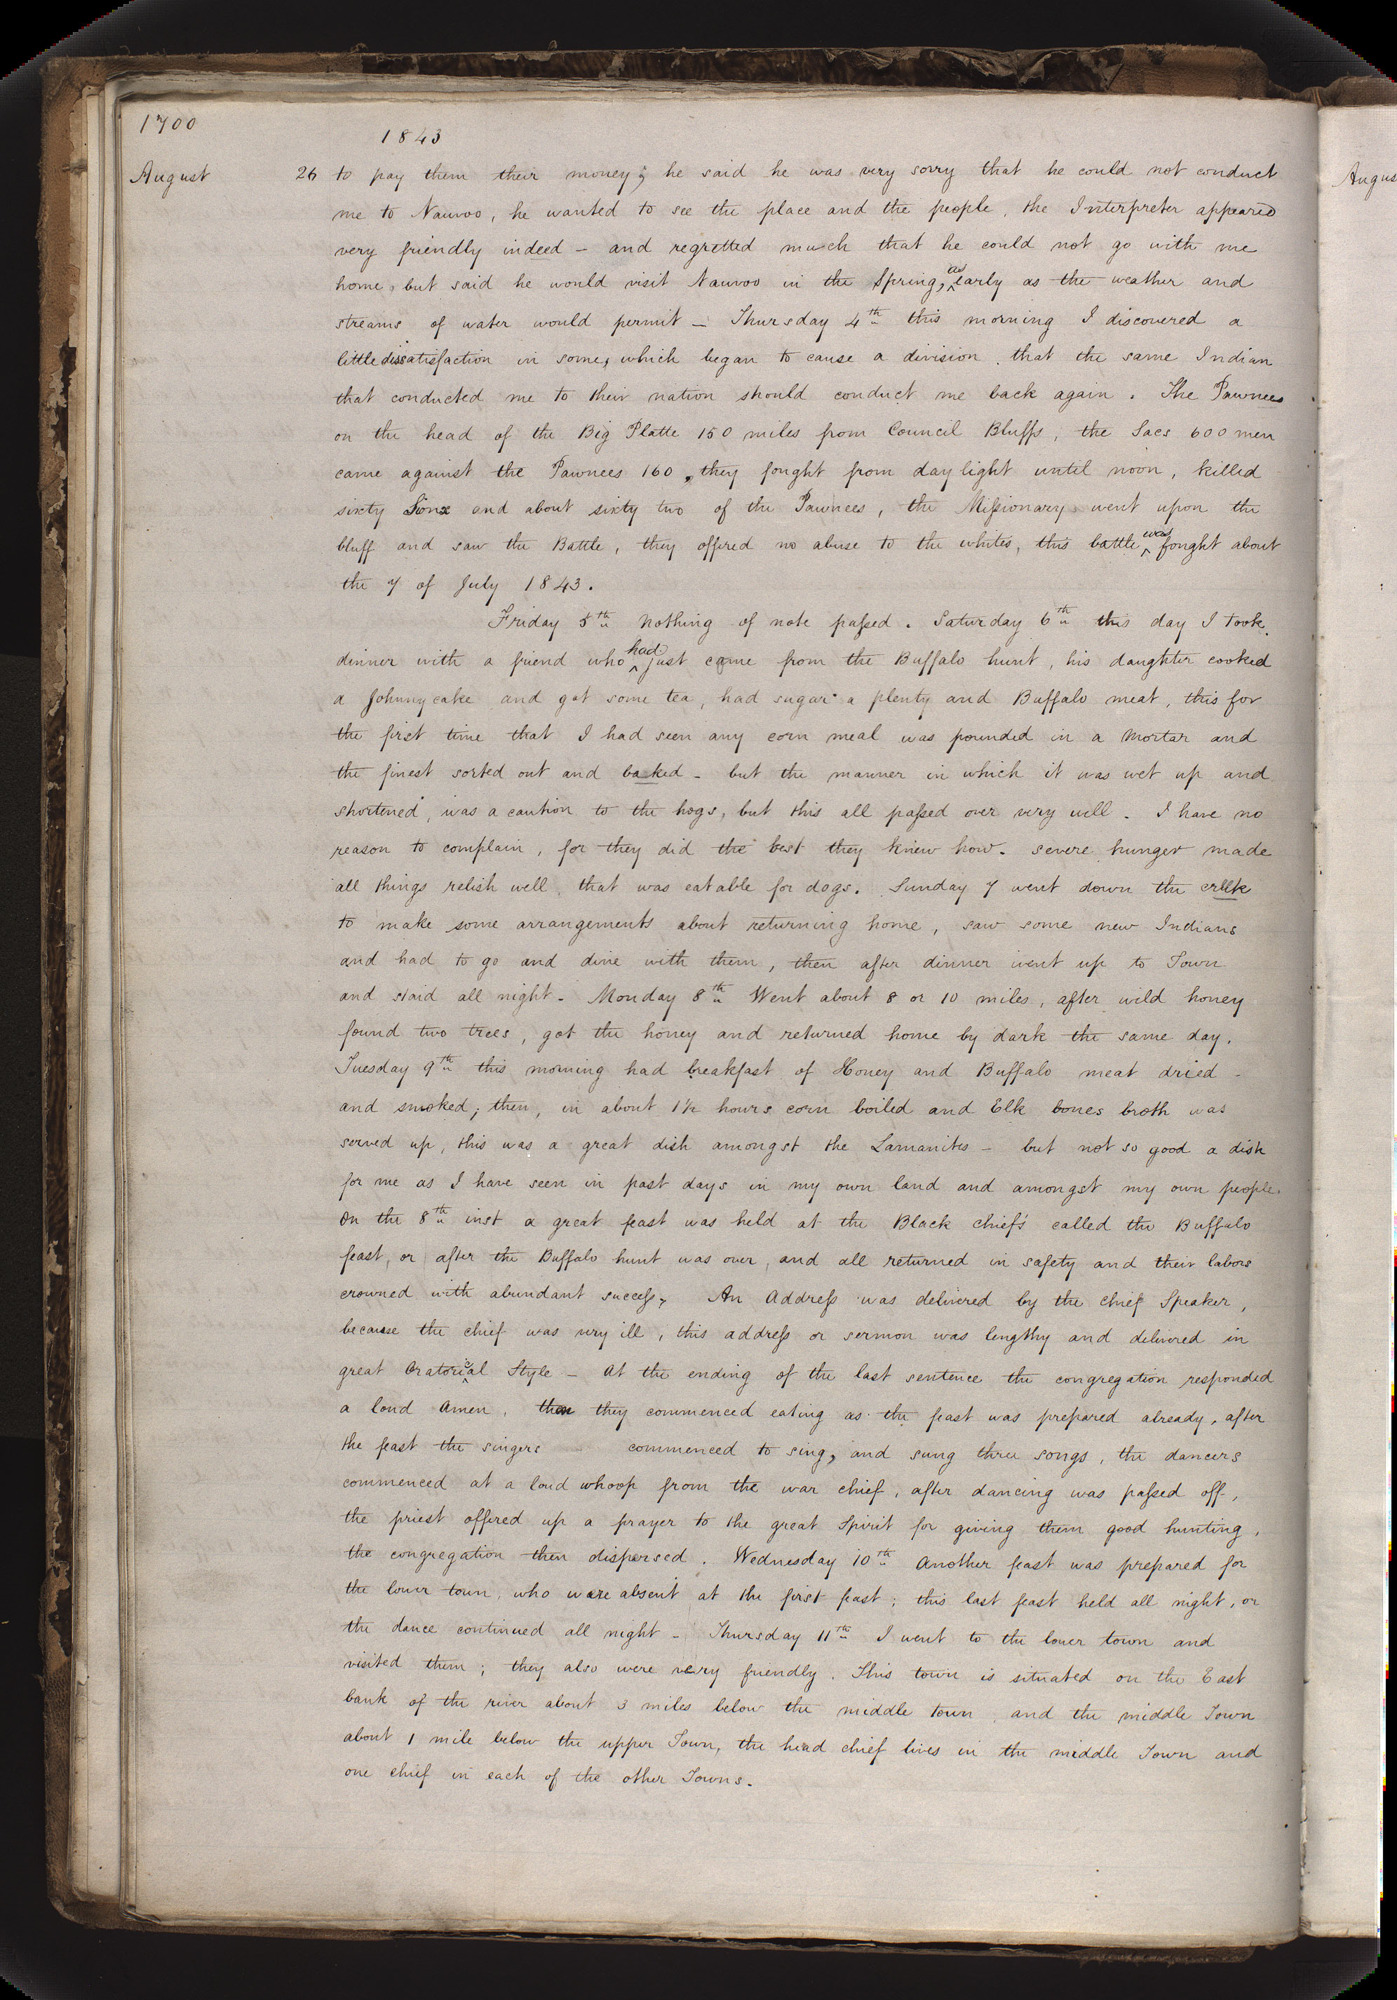 1700
1843
August 26 to pay them their money; he said he was very sorry that he could not conduct
me to Nauvoo, he wanted to see the place and the people, the Interpreter appeared
very friendly indeed – and regretted much that he could not go with me
home, but said he would visit Nauvoo in the Spring, as early as the weather and
streams of water would permit – Thursday 4th this morning I discovered a
little dissatisfaction in some, which began to cause a division, that the same Indian
that conducted me to their nation should conduct me back again. The Pawnees
on the head of the Big Platte 150 miles from Council Bluffs, the Sacs 600 men
came against the Pawnees 160, they fought from daylight until noon, killed
sixty Sioux and about sixty two of the Pawnees, the Missionary went upon the
bluff and saw the Battle, they offered no abuse to the whites, this battle was fought about
the 7 of July 1843.
Friday 5th Nothing of note passed. Saturday 6th this day I took
dinner with a friend who had just came from the Buffalo hunt, his daughter cooked
a Johnnycake and got some tea, had sugar a plenty and Buffalo meat, this for
the first time that I had seen any corn meal was pounded in a Mortar and
the finest sorted out and baked – but the manner in which it was wet up and
shortened, was a caution to the hogs, but this all passed over very well. I have no
reason to complain, for they did the best they knew how. severe hunger made
all things relish well, that was eatable for dogs. Sunday 7 went down the creek
to make some arrangements about returning home, saw some new Indians
and had to go and dine with them, then after dinner went up to Town
and staid all night – Monday 8th Went about 8 or 10 miles, after wild honey
found two trees, got the honey and returned home by dark the same day.
Tuesday 9th this morning had breakfast of Honey and Buffalo meat dried –
and smoked; then, in about 1½ hours corn boiled and Elk bones broth was
served up, this was a great dish amongst the Lamanites – but not so good a dish
for me as I have seen in past days in my own land and amongst my own people.
On the 8th inst a great feast was held at the Black chief's called the Buffalo
feast, or after the Buffalo hunt was over, and all returned in safety and their labors
crowned with abundant success, An Address was delivered by the chief Speaker,
because the chief was very ill, this address or sermon was lengthy and delivered in
great Oratorical Style – At the ending of the last sentence the congregation responded
a loud Amen, then they commenced eating as the feast was prepared already, after
the feast the singers commenced to sing, and sung three songs, the dancers
commenced at a loud whoop from the war chief, after dancing was passed off,
the priest offered up a prayer to the great Spirit for giving them good hunting,
the congregation then dispersed. Wednesday 10th Another feast was prepared for
the lower town, who were absent at the first feast; this last feast held all night, or
the dance continued all night – Thursday 11th I went to the lower town and
visited them; they also were very friendly. This town is situated on the East
bank of the river about 3 miles below the middle town and the middle Town
about 1 mile below the upper Town, the head chief lives in the middle Town and
one chief in each of the other Towns.